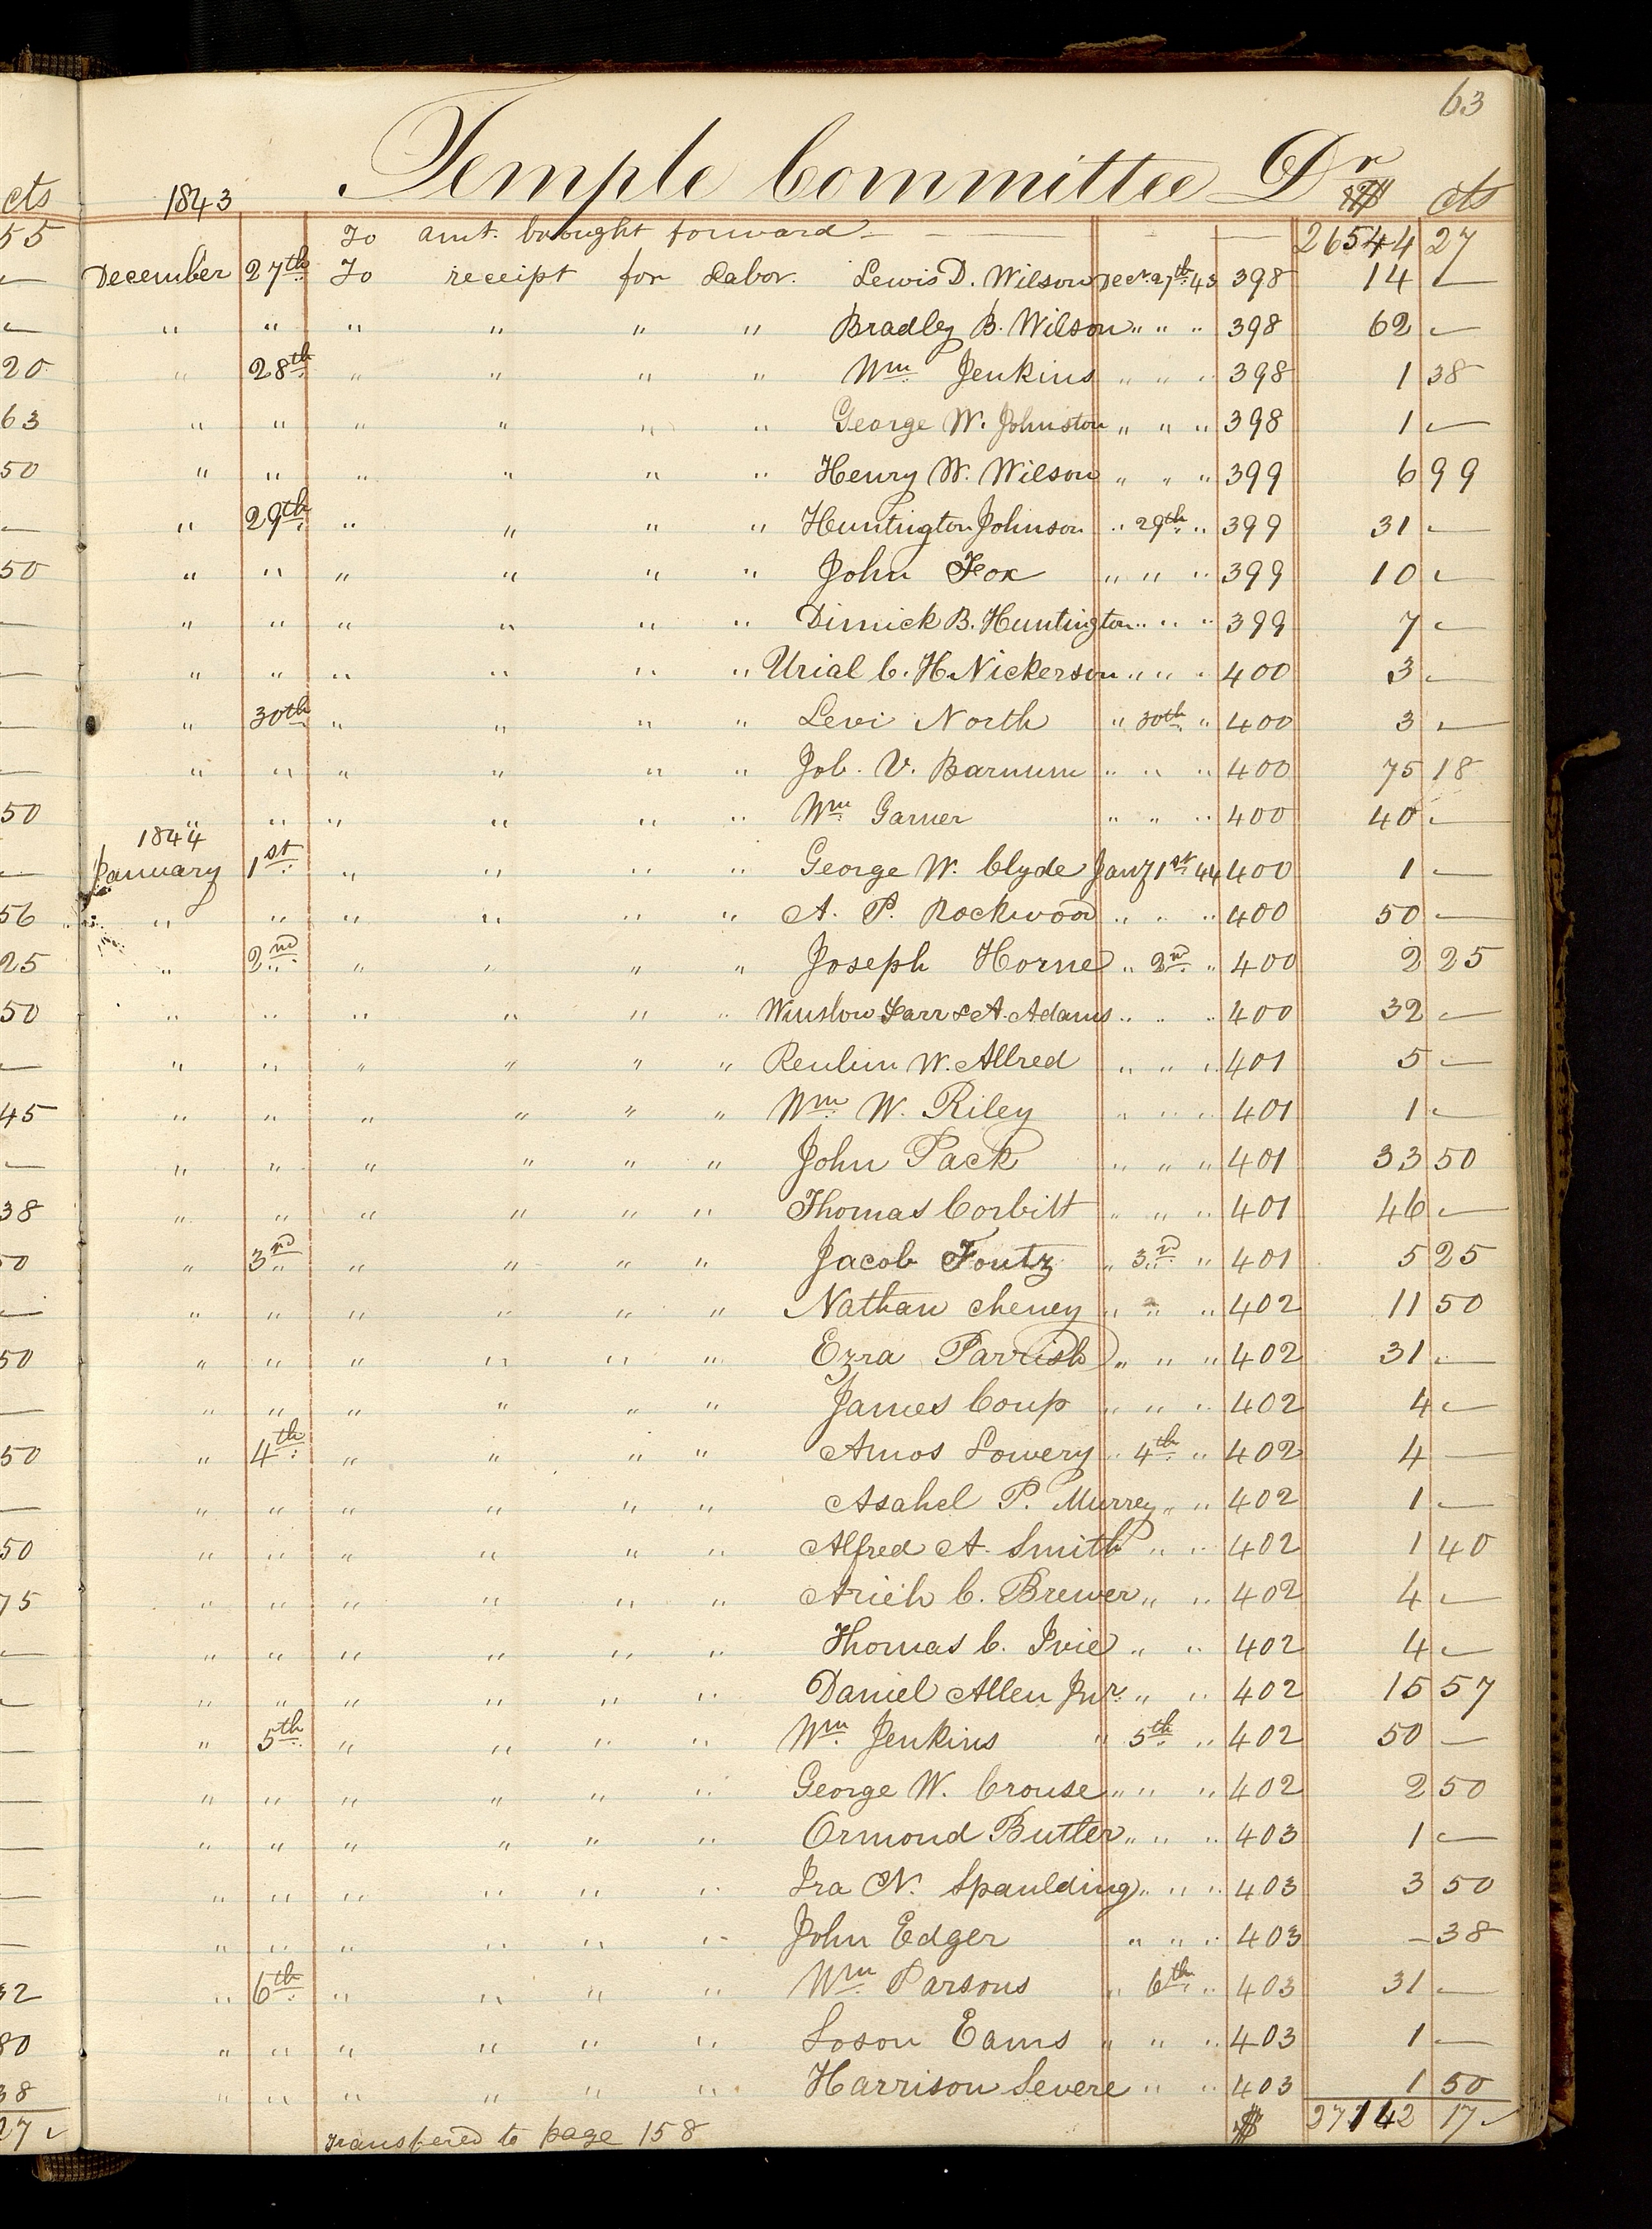 63
Temple Committee Dr
cts 1843 $ cts
55 To amt. brought forward — — — 26544 27
— December 27th To receipt for Labor. Lewis D. Wilson Decr. 27th 43 398 14 —
— " " " " " " Bradley B. Wilson " " " 398 62 —
20 " 28th " " " " Wm Jenkins " " " 398 1 38
63 " " " " " " George W. Johnston " " " 398 1 —
50 " " " " " " Henry W. Wilson " " " 399 6 99
— " 29th " " " " Huntington Johnson " 29th " 399 31 —
50 " " " " " " John Fox " " " 399 10 —
— " " " " " " Dimick B. Huntington " " " 399 7 —
— " " " " " " Urial C. H. Nickerson " " " 400 3 —
— " 30th " " " " Levi North " 30th " 400 3 —
— " " " " " " Job. V. Barnum " " " 400 75 18
50 " " " " " " Wm Garner " " " 400 40 —
1844
— January 1st " " " " George W. Clyde Jany 1st 44 400 1 —
56 " " " " " " A. P. Rockwood " " " 400 50 —
25 " 2nd " " " " Joseph Horne " 2nd " 400 2 25
50 " " " " " " Winslow Farr & A. Adams " " " 400 32 —
— " " " " " " Reubin W. Allred " " " 401 5 —
45 " " " " " " Wm W. Riley " " " 401 1 —
— " " " " " " John Pack " " " 401 33 50
38 " " " " " " Thomas Corbitt " " " 401 46 —
50 " 3rd " " " " Jacob Foutz " 3rd " 401 5 25
— " " " " " " Nathan Cheney " " " 402 11 50
50 " " " " " " Ezra Parrish " " " 402 31 —
— " " " " " " James Coup " " " 402 4 —
50 " 4th " " " " Amos Lowery " 4th " 402 4 —
— " " " " " " Asahel P. Murrey " " 402 1 —
50 " " " " " " Alfred A. Smith " " 402 1 40
75 " " " " " " Arieh C. Brewer " " 402 4 —
— " " " " " " Thomas C. Ivie " " 402 4 —
— " " " " " " Daniel Allen Jnr. " " 402 15 57
— " 5th " " " " Wm Jenkins " 5th " 402 50 —
— " " " " " " George W. Crouse " " " 402 2 50
— " " " " " " Ormond Butler " " " 403 1 —
— " " " " " " Ira N. Spaulding " " " 403 3 50
— " " " " " " John Edger " " " 403 — 38
32 " 6th " " " " Wm Parsons " 6th " 403 31 —
80 " " " " " " Loson Eams " " " 403 1 —
38 " " " " " " Harrison Severe " " 403 1 50
27 ✓ Transfered to page 158 $ 27142 17 ✓